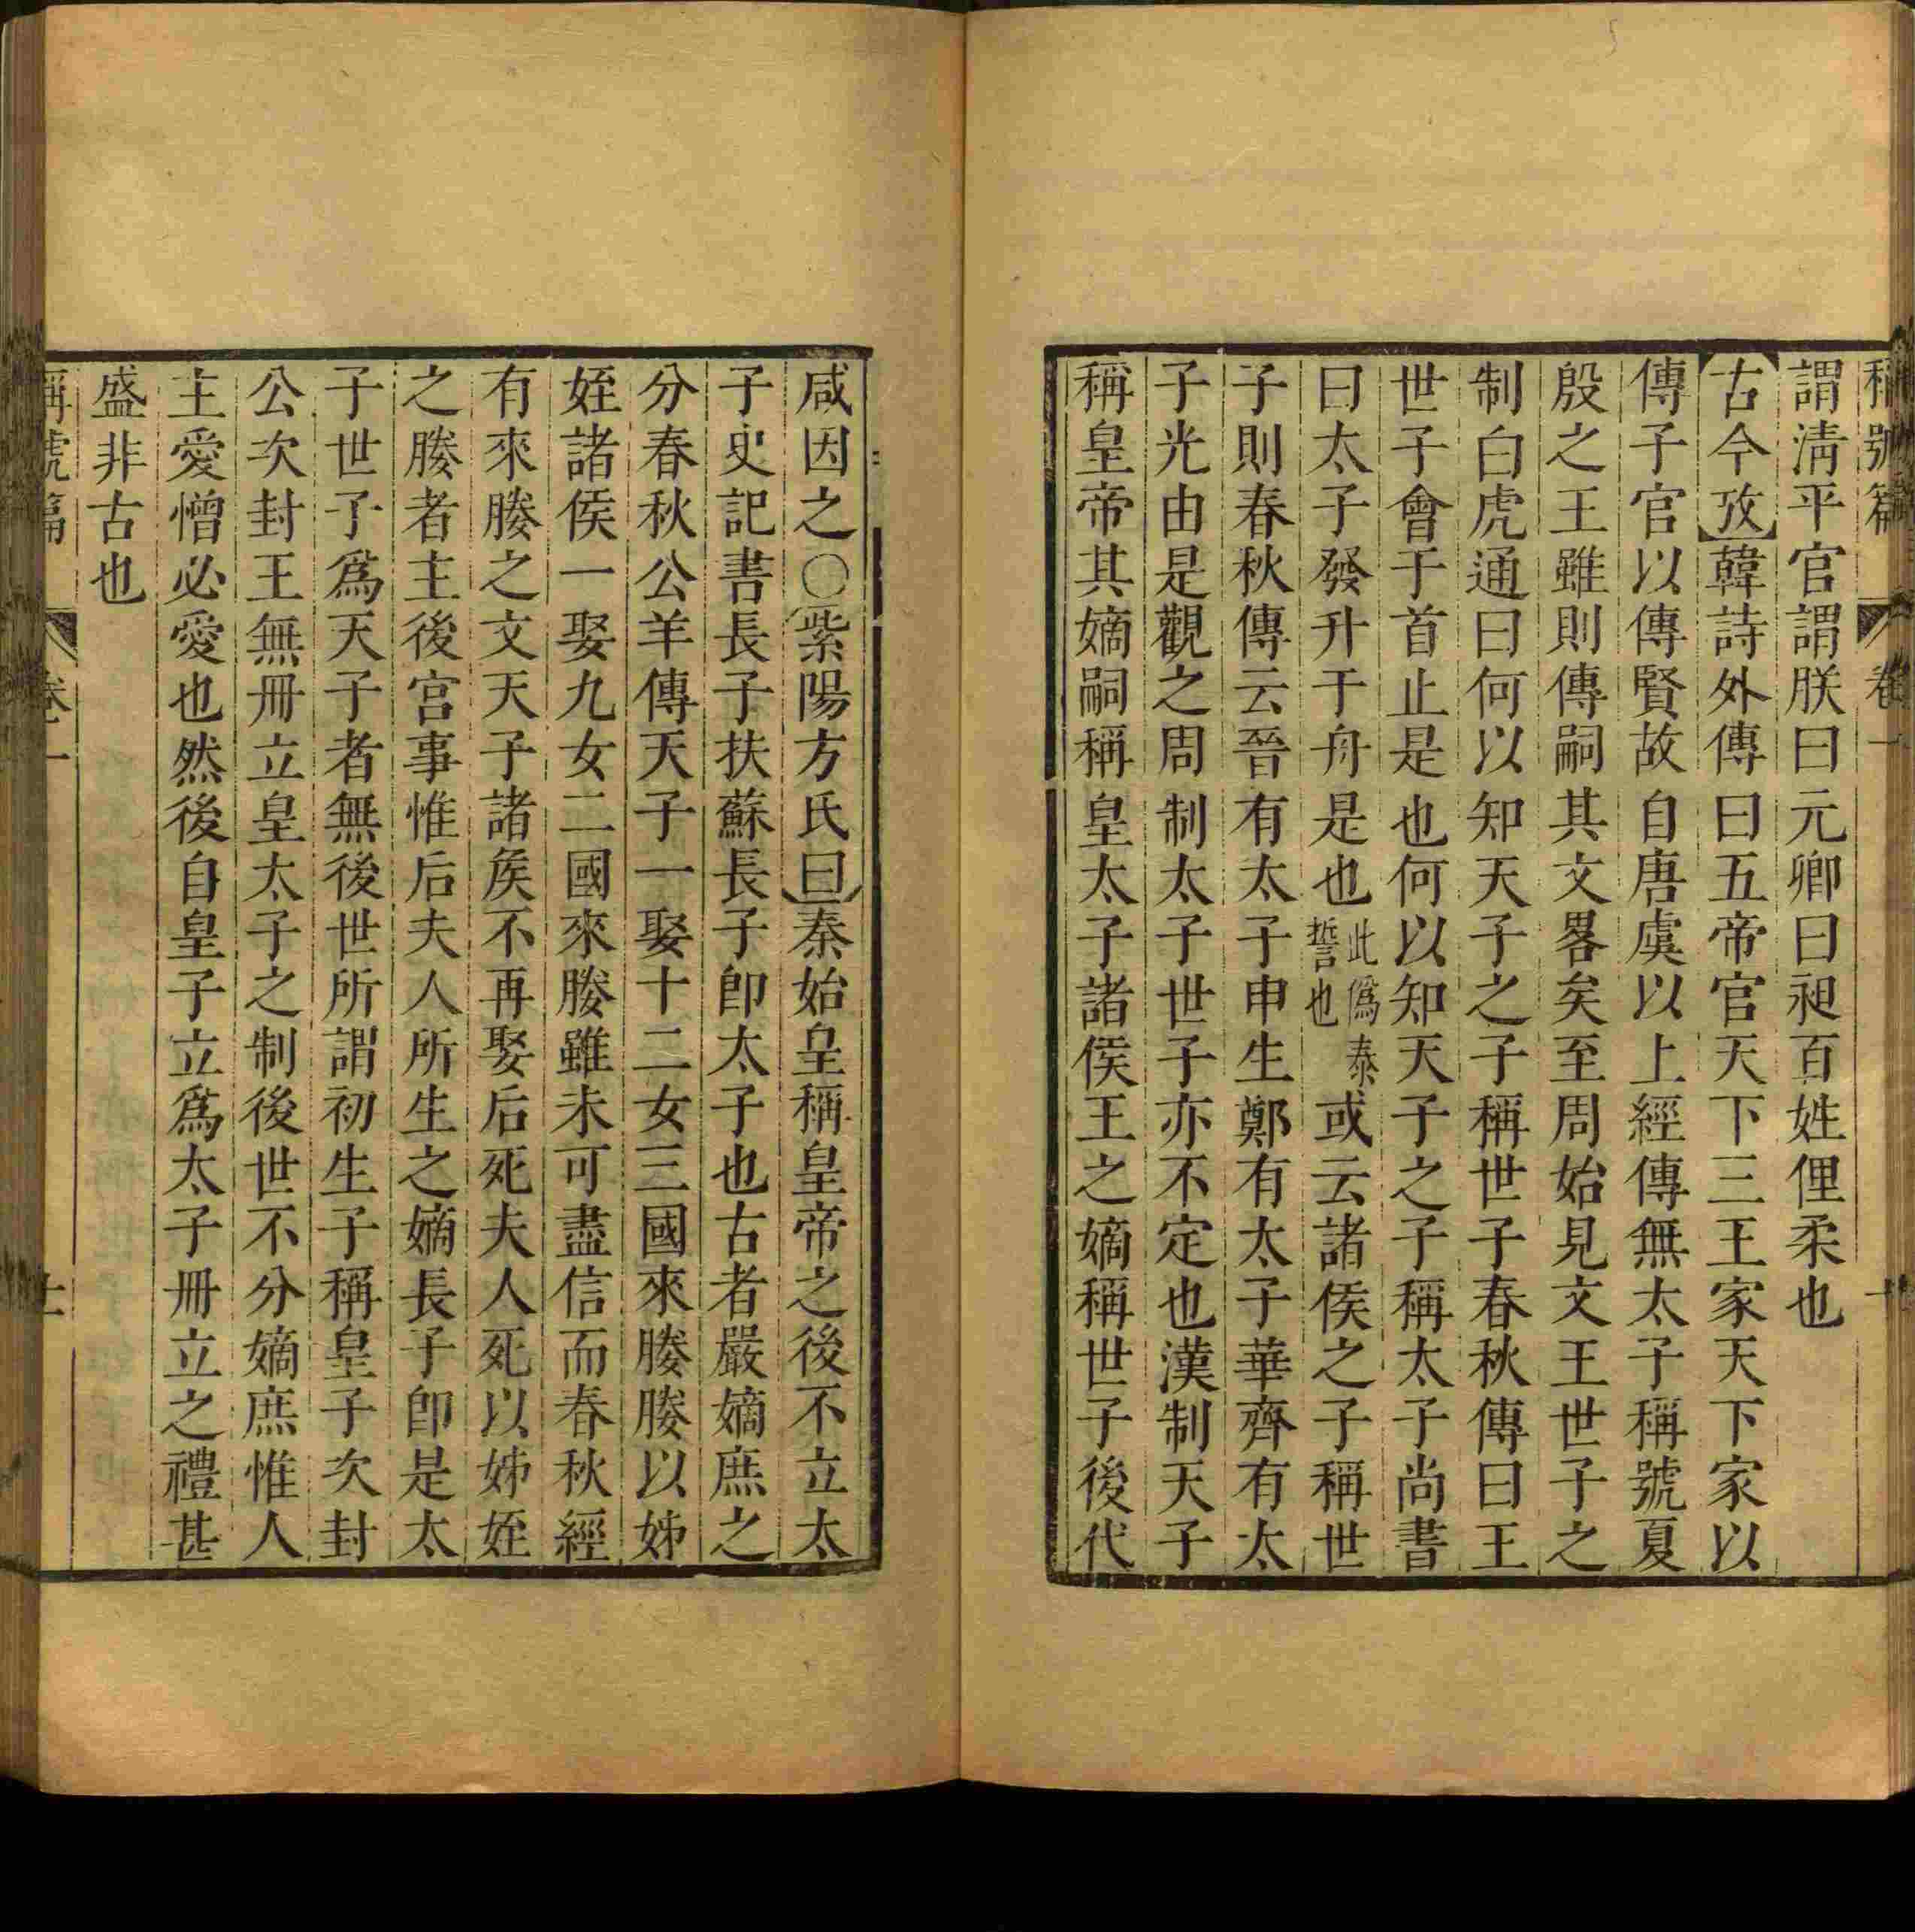 稱號篇 卷一 十
謂淸平官謂朕曰元卿曰昶百姓俚柔也
古今攷韓詩外傳曰五帝官天下三王家天下家以
傳子官以傳賢故自唐虞以上經傳無太子稱號夏
殷之王雖則傳嗣其文畧矣至周始見文王世子之
制白虎通曰何以知天子之子稱世子春秋傳曰王
世子會于首止是也何以知天子之子稱太子尚書
曰太子發升于舟是也此僞泰誓也或云諸侯之子稱世
子則春秋傳云晉有太子申生鄭有太子華齊有太
子光由是觀之周制太子世子亦不定也漢制天子
稱皇帝其嫡嗣稱皇太子諸侯王之嫡稱世子後代
咸因之○紫陽方氏曰秦始皇稱皇帝之後不立太
子史記書長子扶蘇長子卽太子也古者嚴嫡庶之
分春秋公羊傳天子一娶十二女三國來媵媵以姊
姪諸侯一娶九女二國來媵雖未可盡信而春秋經
有來媵之文天子諸矦不再娶后死夫人死以姊姪
之媵者主後宮事惟后夫人所生之嫡長子卽是太
子世子爲天子者無後世所謂初生子稱皇子次封
公次封王無冊立皇太子之制後世不分嫡庶惟人
主愛憎必愛也然後自皇子立爲太子冊立之禮甚
盛非古也
稱號篇 卷一 十一